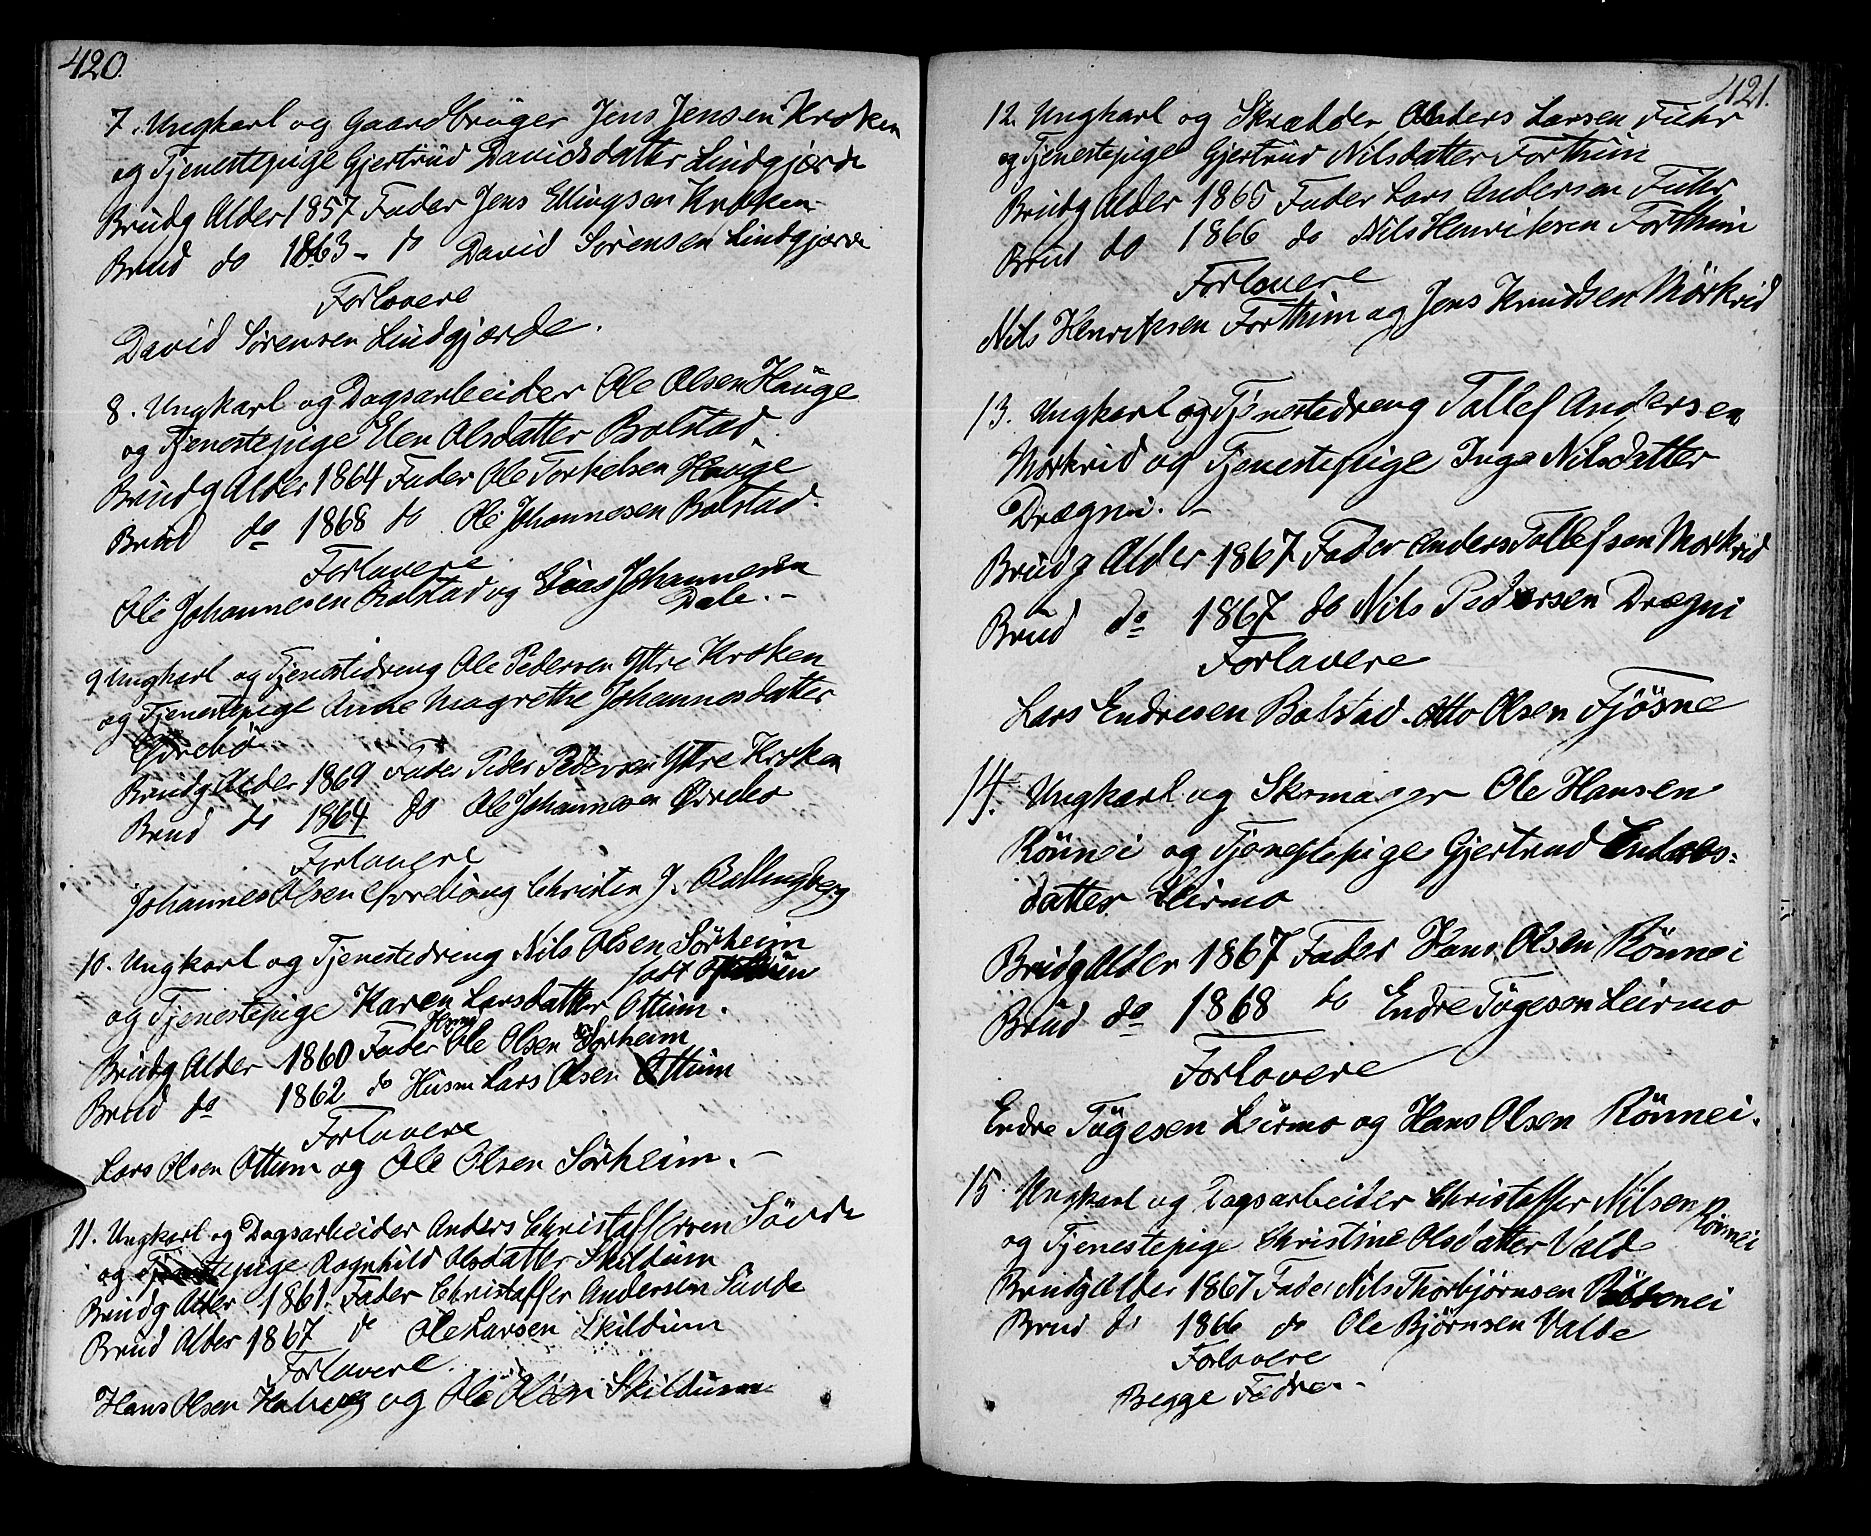 420.
7. Ungkarl og Gaardbruger Jens Jensen Kroken
og Tjenestepige Gjertrud Davidsdatter Lindgjærde
Brudg Alder 1857 Fader Jens Ellingsen Kroken
Brud do 1863 - do David Sørensen Lindgjærde
Forlovere
David Sørensen Lindgjærde.
8. Ungkarl og Dagsarbeider Ole Olsen Hauge
og Tjenestepige Elen Olsdatter Bolstad.
Brudg Alder 1864 Fader Ole Torkelsen Hauge
Brud do 1868 do Ole Johannesen Bolstad.
Forlovere
Ole Johannesen Bolstad og Elias Johannesen
Dale. -
9 Ungkarl og Tjenestedreng Ole Pedersen Yttre Kroken
og Tjenestepige Anne Magrethe Johannesdatter
Øvrebö
Brudg Alder 1869 Fader Peder Pedersen Yttre Kroken
Brud do 1864 do Ole Johannesen Øvrebo
Forlovere
Johannes Olsen Øvrebö og Christen J.
10. Ungkarl og Tjenestedreng Nils Olsen Sørheim
født
og Tjenestepige Karen Larsdatter Ottum.
Brudg Alder 1860 Fader Ole Olsen Sørheim
Brud do 1862 do Husm Lars Olsen Ottum
Forlovere
Lars Olsen Ottum og Ole Olsen Sørheim. -
11. Ungkarl og Dagsarbeider Anders Christaffersen Sövde
og Tjenestepige Ragnhild Olsdatter Skildum
Brudg Alder 1861. Fader Christaffer Andersen Sövde
Brud Alder 1867 do Ole Larsen Skildum
Forlovere.
Hans Olsen og Ole Olsen Skildum
421.
12. Ungkarl og Skrædder Anders Larsen Fuhr
og Tjenestepige Gjertrud Nilsdatter Forthun
Brudg Alder 1865 Fader Lars Andersen Fuhr
Brud do 1866 do Nils Henriksen Forthun
Forlovere
Nils Henriksen Forthun og Jens Knudsen Mörkrid
13. Ungkarl og Tjenestedreng Tallef Andersen
Morkrid og Tjenestepige Inga Nilsdatter
Drægni. -
Brudg Alder 1867 Fader Anders Tallefsen Morkrid
Brud do 1867 do Nils Pedersen Drægni
Forlovere
Lars Endresen Bolstad. Otto Olsen Fjösne
14. Ungkarl og Skomager Ole Hansen
Rönnei og Tjenestepige Gjertrud Endres-
datter Leirmo
Brudg Alder 1867 Fader Hans Olsen Rönnei
Brud do 1868 do Endre Tögesen Leirmo
Forlovere
Endre Tögesen Leirmo og Hans Olsen Rönnei.
15. Ungkarl og Dagsarbeider Christaffer Nilsen
Rönnei
og Tjenestepige Christine Olsdatter Valde
Brudg Alder 1867 Fader Nils Thorbjørnsen Rönnei
Brud do 1866 do Ole Bjørnsen Valde
Forlovere
Begge Fædre. -